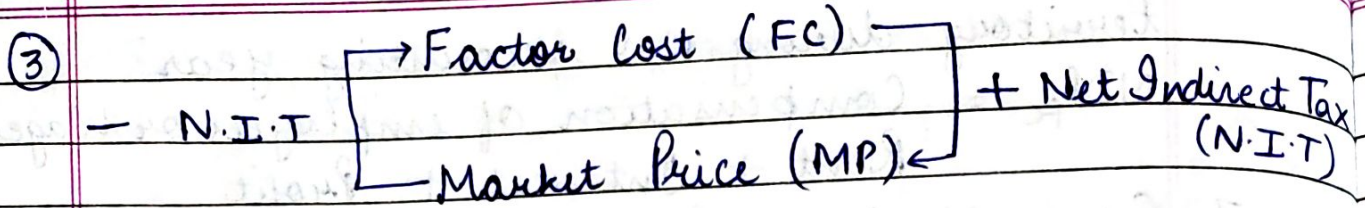 ③ → Factor Cost (FC)
+ Net Indirect Tax
- N.I.T
(N.I.T)
Market Price (MP) ←